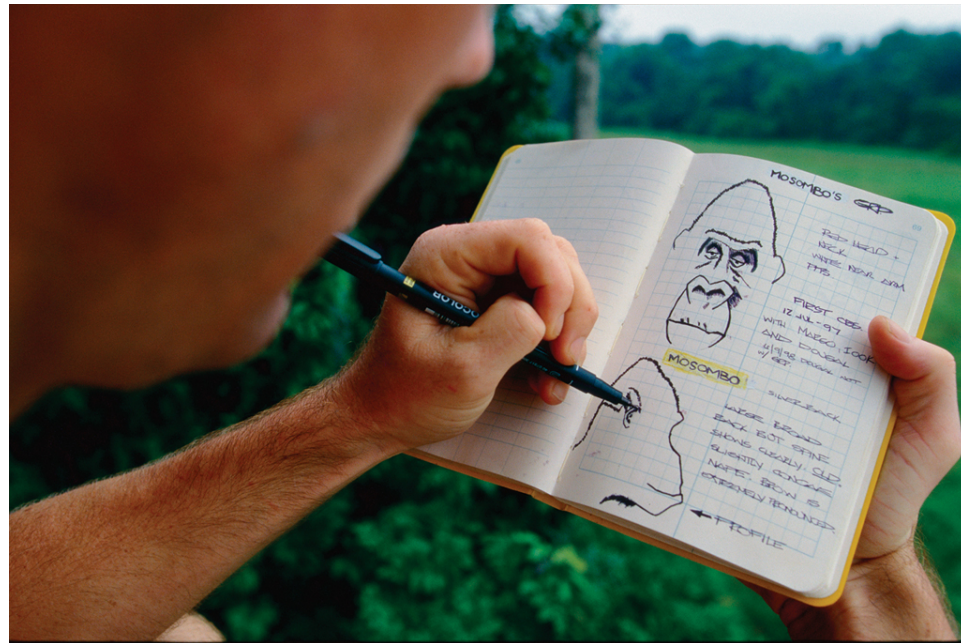 MOSOMBO'S GRP
RED HEAD +
NECK
WHITE NEAR
FIRST OBS.
12 JUL-97
WITH MABEO, 100K
AND DOUGAL
4/9/98 DOUGAL NOT
MOSOMBO
SILVERBACK
LARGE BROAD
BACK BUT SPINE
SHOWS CLEARLY.
SLIGHTLY CONCAVE
NAPE. BROW IS
EXTREMELY PRONOUNCED.
← PROFILE
OCOLOR